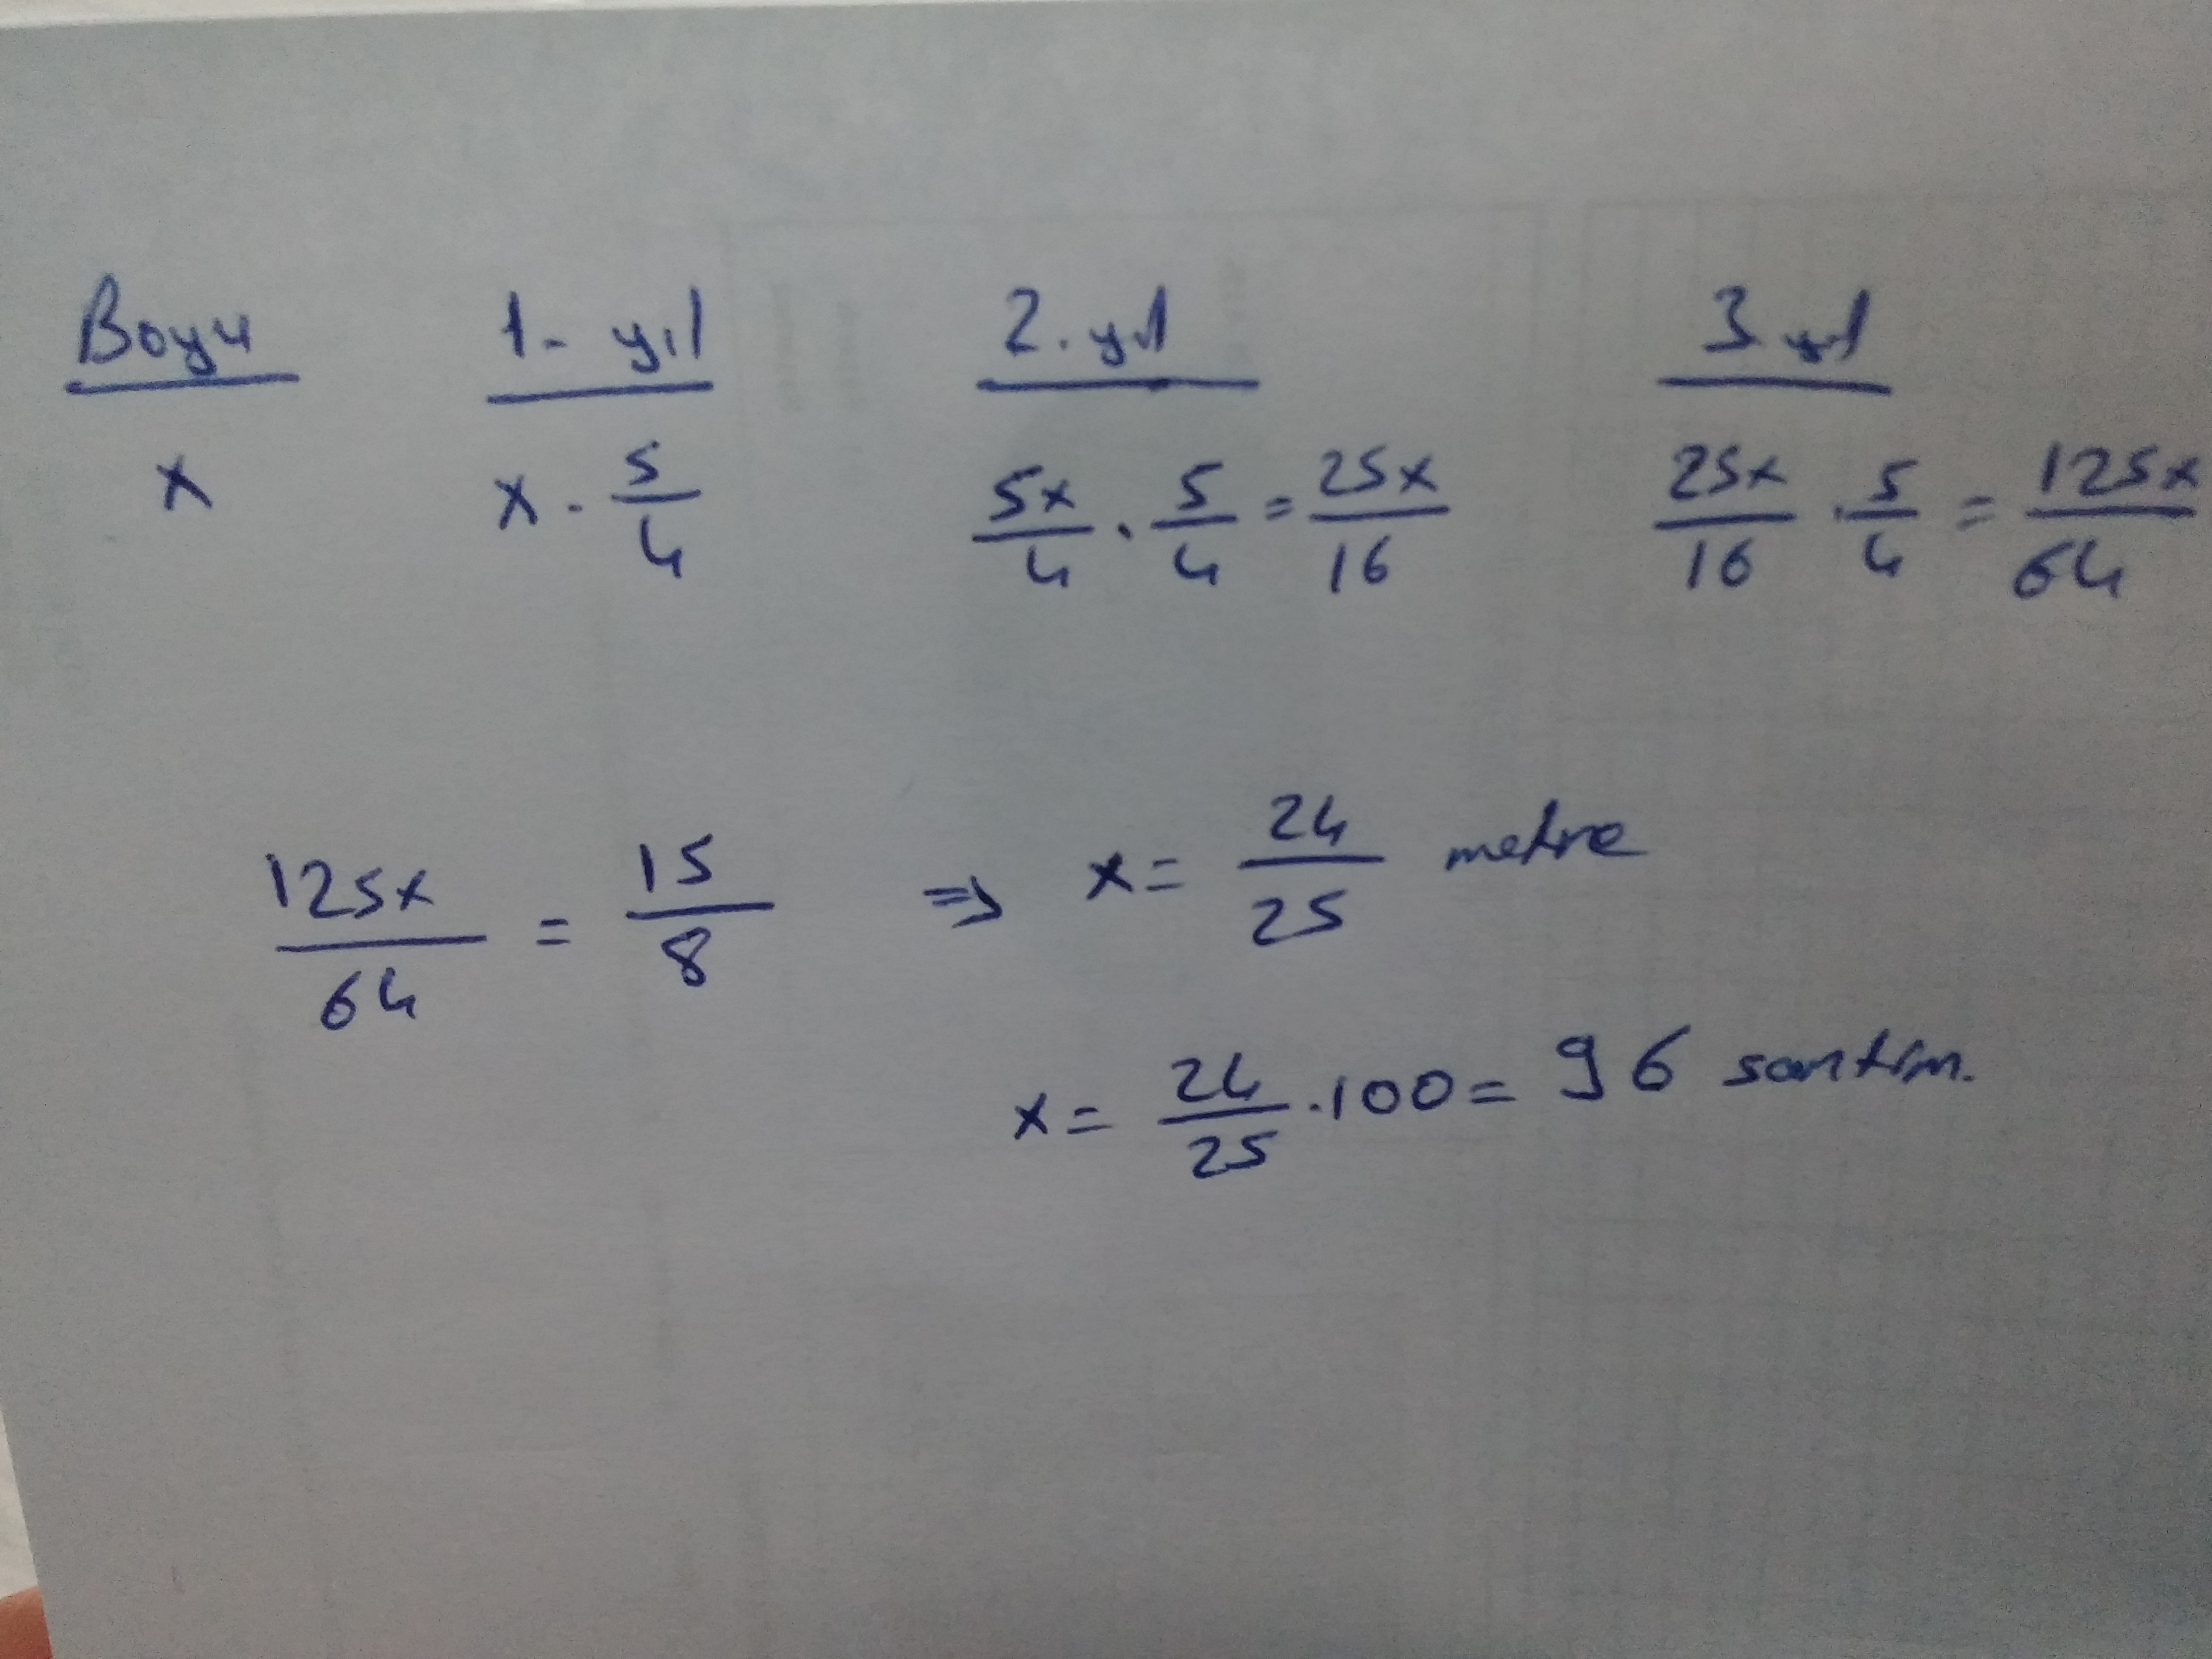 Boyu 1. yıl 2. yıl 3 yıl
x x · 5/4 5x/4 · 5/4 = 25x/16 25x/16 · 5/4 = 125x/64
125x/64 = 15/8 ⇒ x = 24/25 metre
x = 24/25 · 100 = 96 santim.